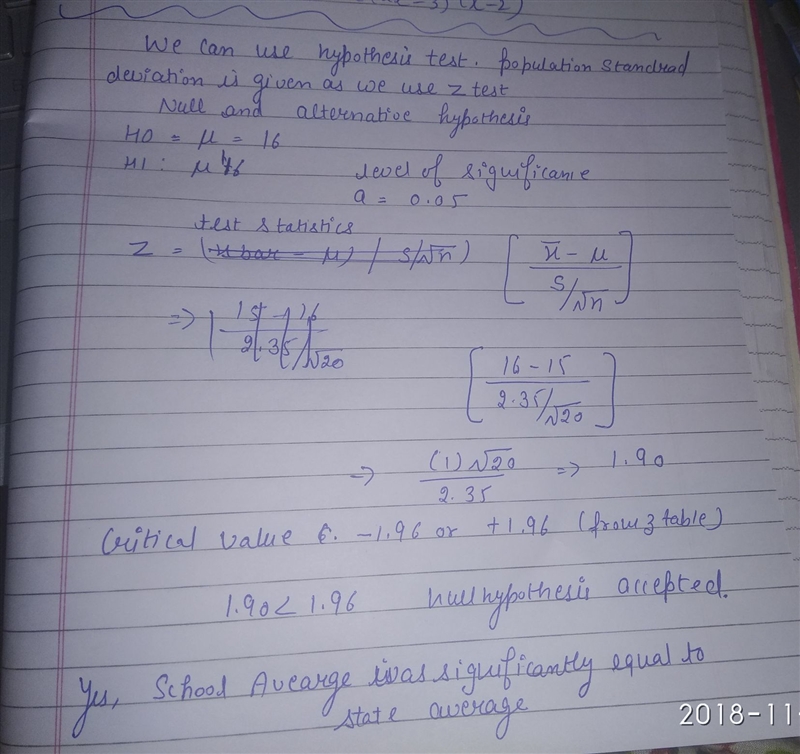 We can use hypothesis test. population Standrad
deviation is given as we use z test
Null and alternative hypothesis
H0 = μ = 16
H1 : μ ≠ 16
level of significanse
a = 0.05
test statistics
Z = (x bar - μ) / s/√n )
[ x̄ - μ / S/√n ]
=> | 15 - 16 / 2.35/√20
[ 16 - 15 / 2.35/√20 ]
=> (1)√20 / 2.35 => 1.90
Critical value -1.96 or +1.96 (from z table)
1.90 < 1.96 Null hypothesis accepted.
Yes, School Avearge was significantly equal to
state average
2018-11-